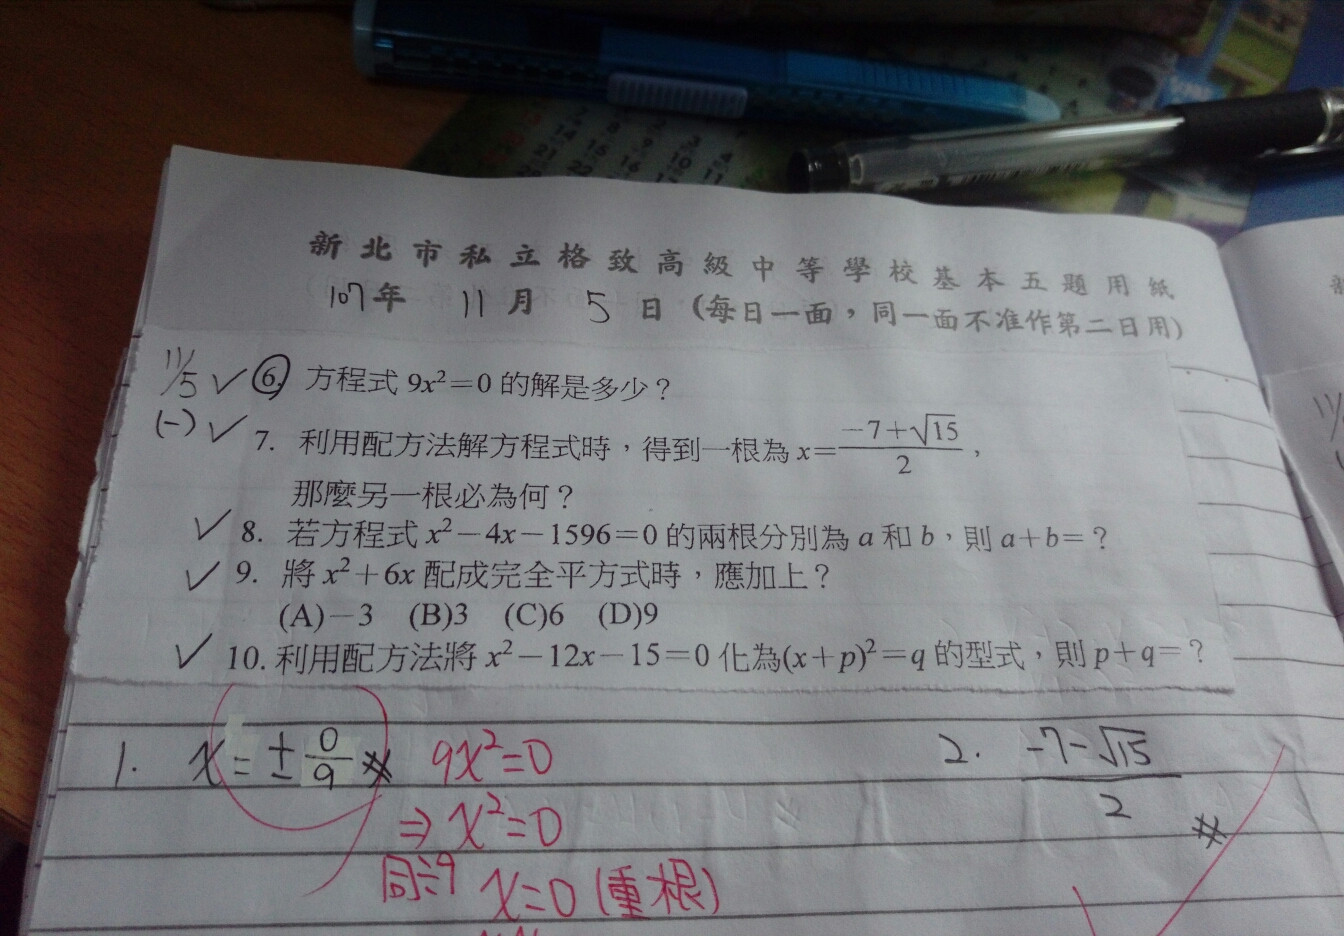 新北市私立格致高級中等學校基本五題用紙
107年 11月 5日 (每日一面，同一面不准作第二日用)
11/5 ✓ 6. 方程式 9x²=0 的解是多少？
(一) ✓ 7. 利用配方法解方程式時，得到一根為 x=(-7+√15)/2，
那麼另一根必為何？
✓ 8. 若方程式 x²-4x-1596=0 的兩根分別為 a 和 b，則 a+b=？
✓ 9. 將 x²+6x 配成完全平方式時，應加上？
(A)-3 (B)3 (C)6 (D)9
✓ 10. 利用配方法將 x²-12x-15=0 化為(x+p)²=q 的型式，則 p+q=？
1. x=±0/9 # 9x²=0
⇒ x²=0
同÷9 x=0 (重根)
2. (-7-√15)/2 #